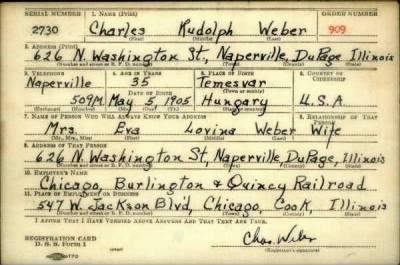 SERIAL NUMBER 1. NAME (Print) ORDER NUMBER
2730 Charles Rudolph Weber 909
(First) (Middle) (Last)
2. ADDRESS (Print)
626 N. Washington St., Naperville, DuPage Illinois
(Number and street or R. F. D. number) (Town) (County) (State)
3. TELEPHONE 4. AGE IN YEARS 5. PLACE OF BIRTH 6. COUNTRY OF CITIZENSHIP
Naperville 35 Temesvar
DATE OF BIRTH (Town or county)
509M May 5, 1905 Hungary U.S.A.
(Exchange) (Number) (Mo.) (Day) (Yr.) (State or country)
7. NAME OF PERSON WHO WILL ALWAYS KNOW YOUR ADDRESS 8. RELATIONSHIP OF THAT PERSON
Mrs. Eva Lovina Weber Wife
(Mr., Mrs., Miss) (First) (Middle) (Last)
9. ADDRESS OF THAT PERSON
626 N. Washington St, Naperville, DuPage, Illinois
(Number and street or R. F. D. number) (Town) (County) (State)
10. EMPLOYER'S NAME
Chicago, Burlington & Quincy Railroad
11. PLACE OF EMPLOYMENT OR BUSINESS
547 W. Jackson Blv'd, Chicago, Cook, Illinois
(Number and street or R. F. D. number) (Town) (County) (State)
I AFFIRM THAT I HAVE VERIFIED ABOVE ANSWERS AND THAT THEY ARE TRUE.
REGISTRATION CARD
D. S. S. Form 1
Chas. Weber
(Registrant's signature)